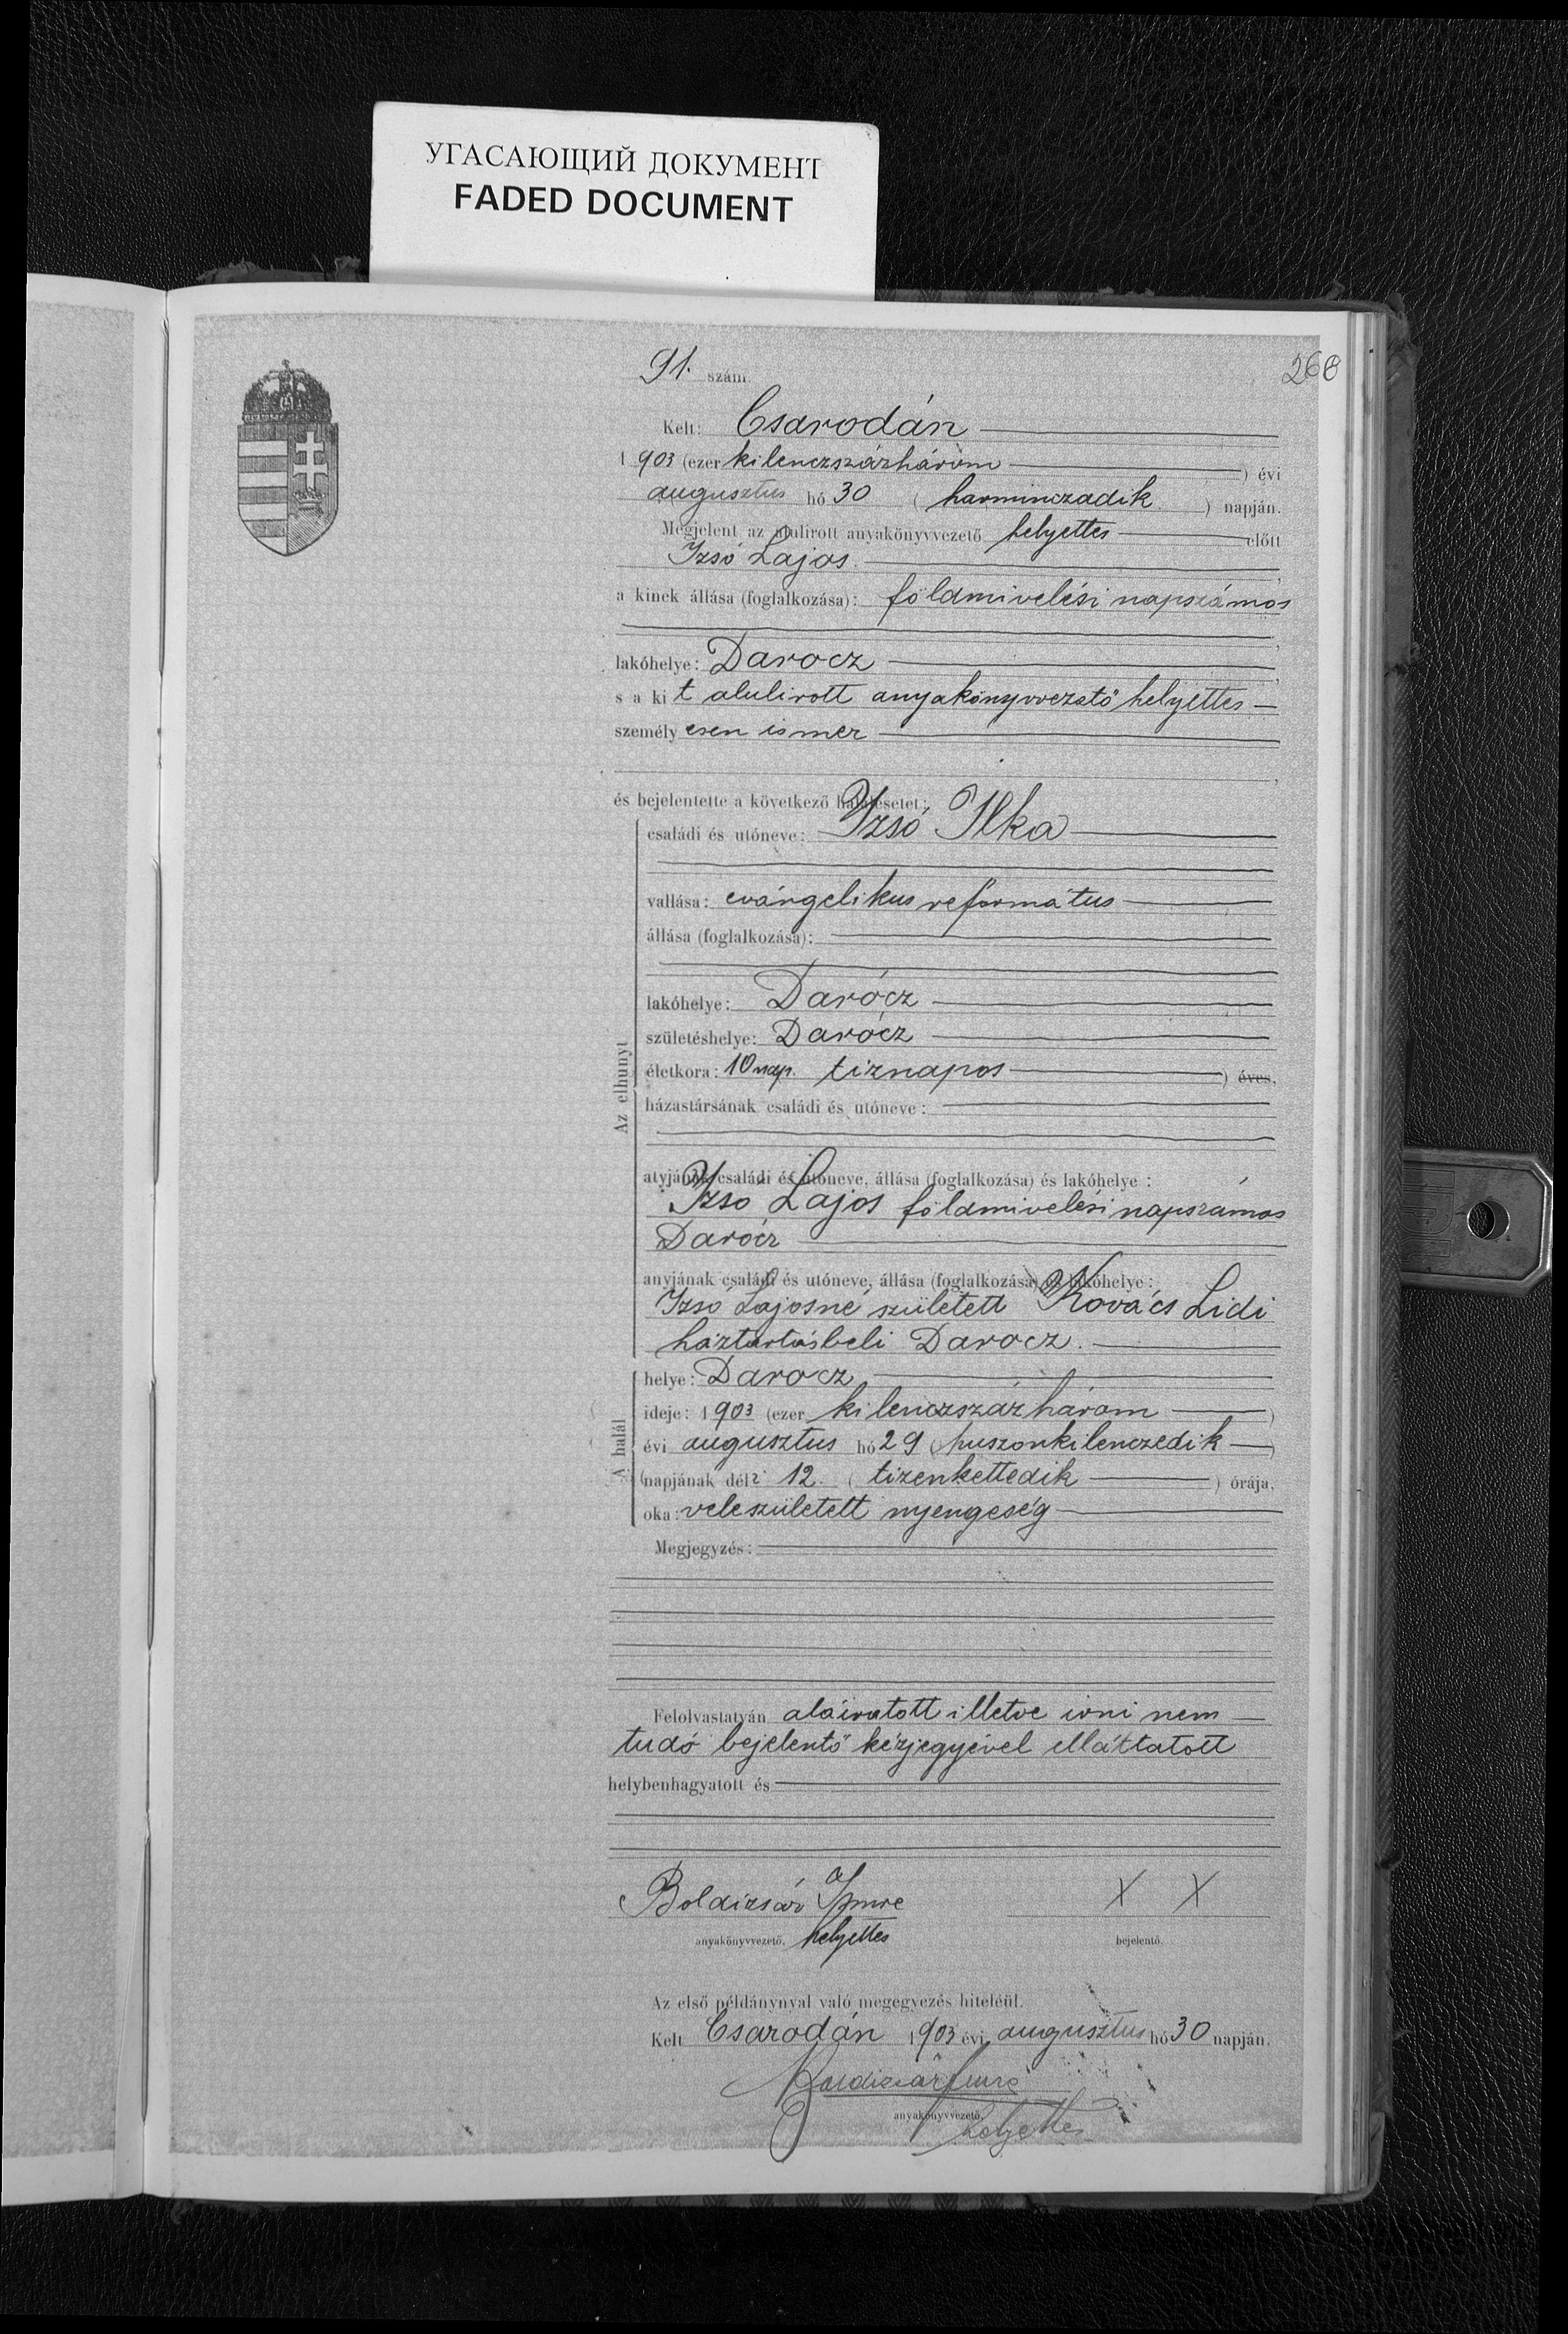 УГАСАЮЩИЙ ДОКУМЕНТ
FADED DOCUMENT
91. szám.
Kelt: Csarodán
1903 (ezer kilenczszázhárom) évi
augusztus hó 30 (harminczadik) napján.
Megjelent az alulirott anyakönyvvezető helyettes előtt
Izsó Lajos.
a kinek állása (foglalkozása): földmivelési napszámos
lakóhelye: Darocz
s a kit alulirott anyakönyvvezető helyettes
személyesen ismer
és bejelentette a következő halálesetet:
családi és utóneve: Izsó Ilka
vallása: evángelikus református
állása (foglalkozása):
lakóhelye: Darócz
születéshelye: Darócz
életkora: 10 nap. tiznapos) éves,
házastársának családi és utóneve:
Az elhunyt
atyjának családi és utóneve, állása (foglalkozása) és lakóhelye:
Izsó Lajos földmivelési napszámos
Darócz
anyjának családi és utóneve, állása (foglalkozása) és lakóhelye:
Izsó Lajosné született Kovács Lidi
háztartásbeli Darocz.
helye: Darocz
ideje: 1903 (ezer kilenczszázhárom)
évi augusztus hó 29 (huszonkilenczedik)
napjának déli 12. (tizenkettedik) órája,
oka: veleszületett nyengeség
A halál
Megjegyzés:
Felolvastatván aláiratott illetve irni nem
tudó bejelentő kézjegyével elláttatott
helybenhagyatott és
Boldizsár Imre X X
anyakönyvvezető. helyettes bejelentő.
Az első példánynyal való megegyezés hiteléül.
Kelt Csarodán 1903 évi augusztus hó 30 napján.
Boldizsár Imre
anyakönyvvezető.
helyettes